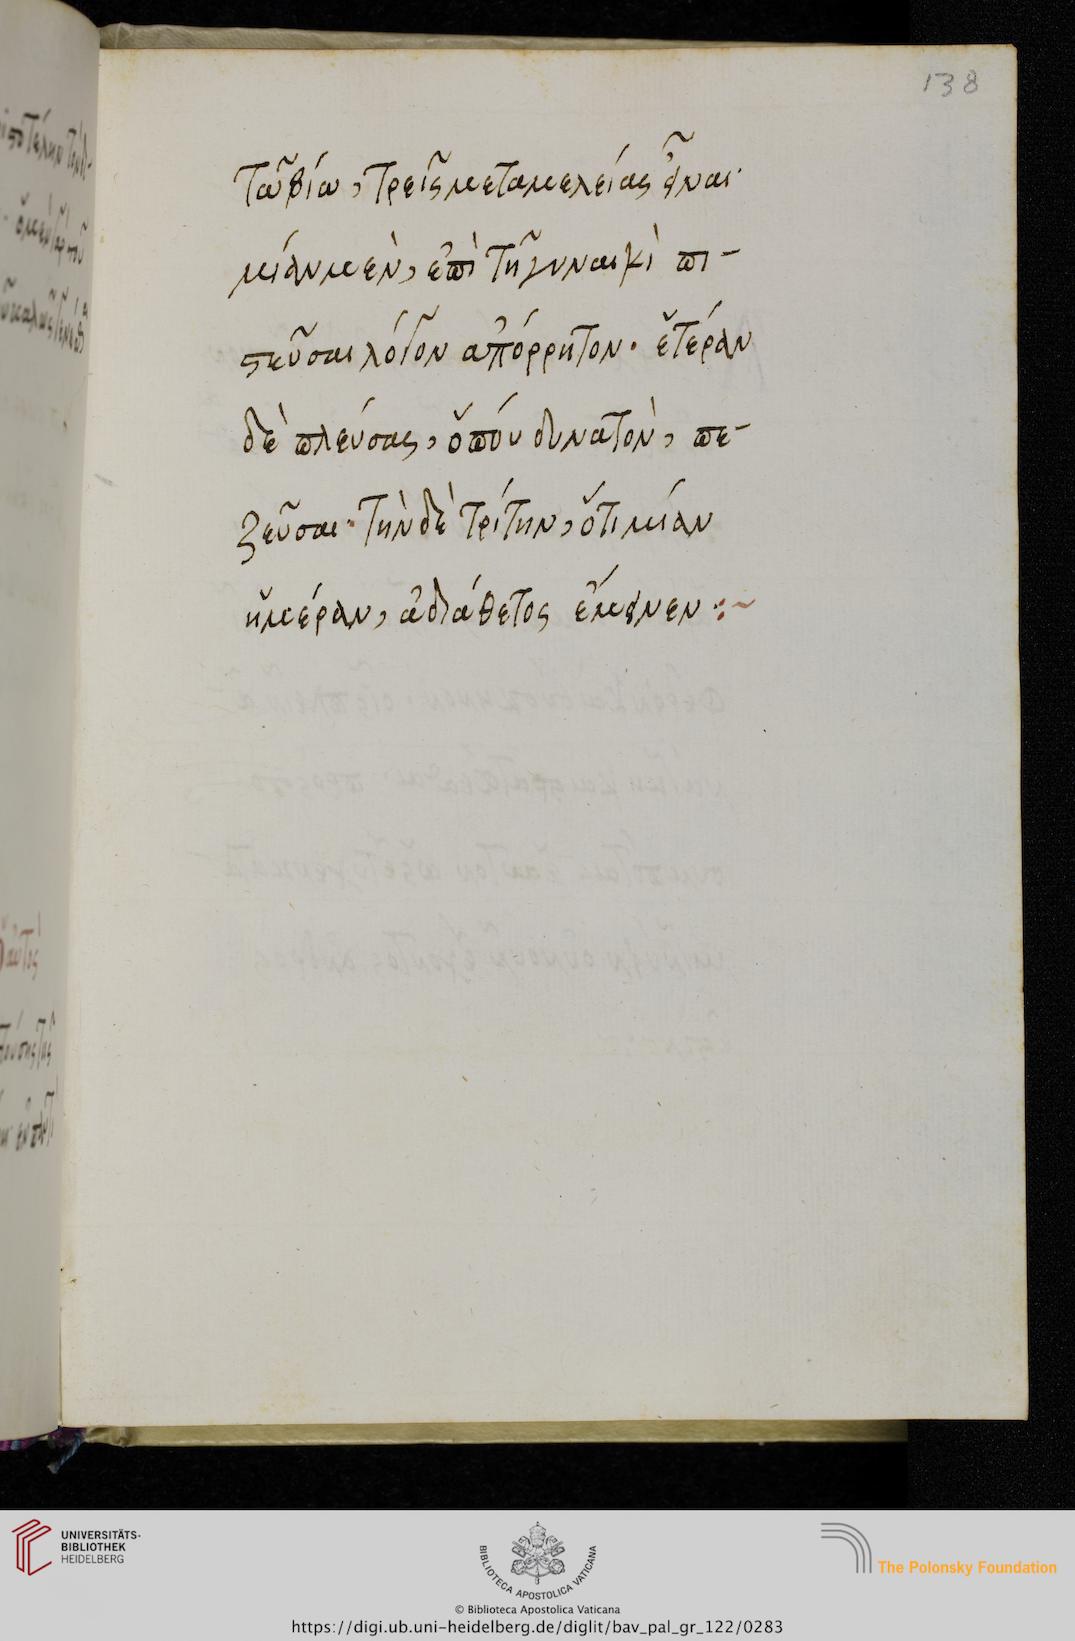 138
τῶ βίω, τρεῖς μεταμελείας εἶναι·
μίαν μὲν, ἐπὶ τῆ γυναικὶ πι-
στεῦσαι λόγον ἀπόρρητον· ἑτέραν
δὲ πλεύσας, ὅπου δυνατὸν, πε-
ζεῦσαι· τὴν δὲ τρίτην, ὅτι μίαν
ἡμέραν, ἀδιάθετος ἔμεινεν :~
UNIVERSITÄTS-
BIBLIOTHEK
HEIDELBERG
BIBLIOTECA APOSTOLICA VATICANA
The Polonsky Foundation
© Biblioteca Apostolica Vaticana
https://digi.ub.uni-heidelberg.de/diglit/bav_pal_gr_122/0283